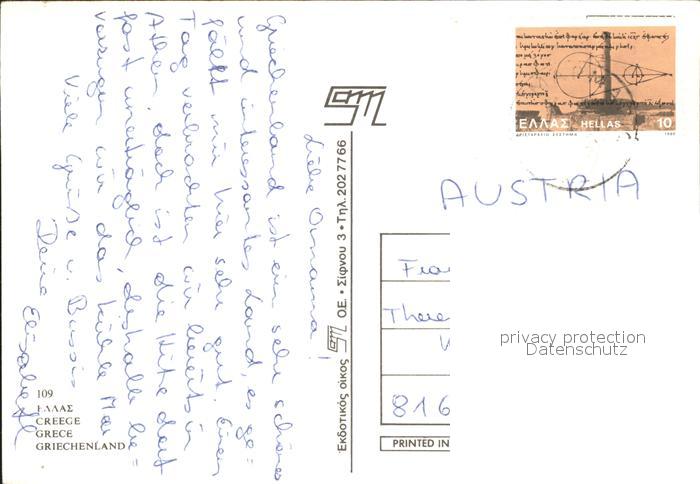 Liebe Omama!
Griechenland ist ein sehr schönes
und interessantes Land, es ge=
fällt mir hier sehr gut. Einen
Tag verbrachten wir bereits in
Athen, doch ist die Hitze dort
fast unerträglich, deshalb be=
vorzugen wir das kühle Meer
Viele Grüße u. Bussis
Deine Elisabeth
109
ΕΛΛΑΣ
CREEGE
GRECE
GRIECHENLAND
Εκδοτικός οίκος GM Ο.Ε. • Σίφνου 3 • Τηλ. 202 77 66
ΕΛΛΑΣ HELLAS 10
ΑΡΙΣΤΑΡΧΕΙΟ ΣΥΣΤΗΜΑ 1980
AUSTRIA
Frau
There
W
816
PRINTED IN
privacy protection
Datenschutz